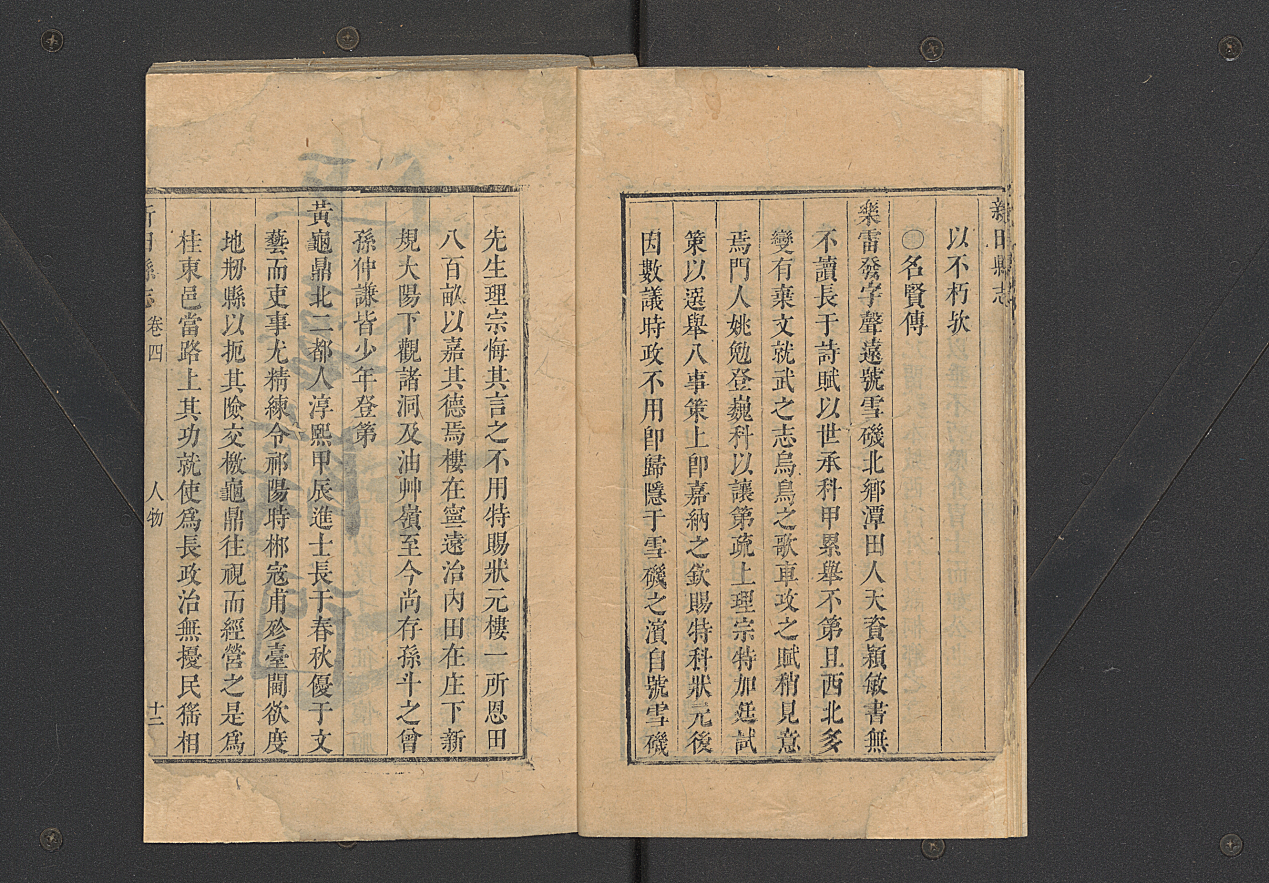 新田縣志
以不朽欤
名賢傳
樂雷發字聲遠號雪磯北鄉潭田人天資穎敏書無
不讀長于詩賦以世承科甲累舉不第且西北多
變有棄文就武之志烏烏之歌車攻之賦稍見意
焉門人姚勉登巍科以讓第疏上理宗特加廷試
策以選舉八事策上卽嘉納之欽賜特科狀元後
因數議時政不用卽歸隱于雪磯之濱自號雪磯
先生理宗悔其言之不用特賜狀元樓一所恩田
八百畝以嘉其德焉樓在寧遠治內田在庄下新
規大陽下觀諸洞及油艸嶺至今尚存孫斗之曾
孫仲謙皆少年登第
黃龜鼎北二都人淳熙甲辰進士長于春秋優于文
藝而吏事尤精練令祁陽時郴宼甫殄臺閫欲度
地剏縣以扼其險交檄龜鼎往視而經營之是爲
桂東邑當路上其功就使爲長政治無擾民猺相
新田縣志 卷四 人物 十二